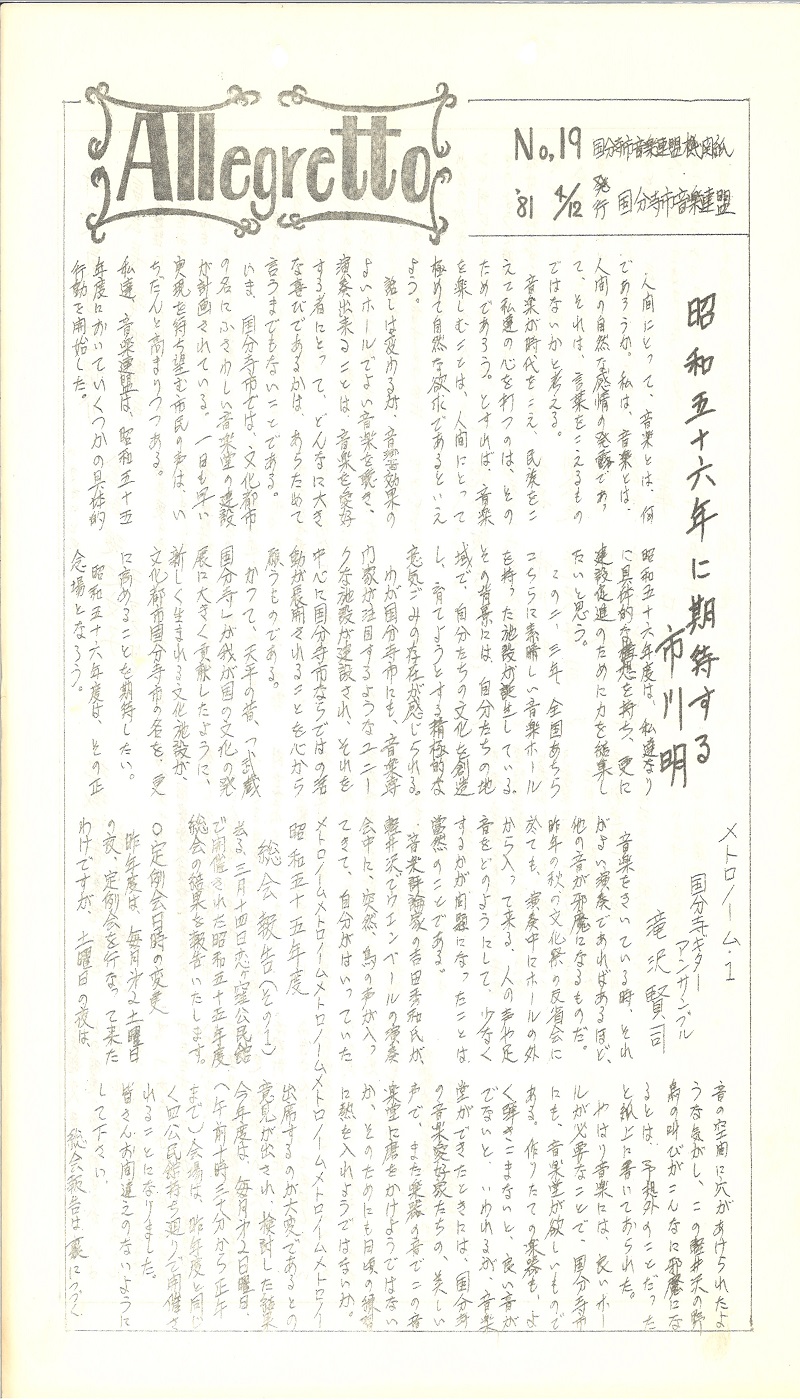 Allegretto
No.19 国分寺市音楽連盟機関紙
'81 4/12 発行 国分寺市音楽連盟
昭和五十六年に期待する
市川明
人間にとって、音楽とは、何
であろうか。私は、音楽とは、
人間の自然な感情の発露であっ
て、それは、言葉をこえるもの
ではないかと考える。
音楽が時代をこえ、民族をこ
えて私達の心を打つのは、その
ためであろう。とすれば、音楽
を楽しむことは、人間にとって
極めて自然な欲求であるといえ
よう。
話しは変わるが、音響効果の
よいホールでよい音楽を聴き、
演奏出来ることは、音楽を愛好
する者にとって、どんなに大き
な喜びであるかは、あらためて
言うまでもないことである。
いま、国分寺市では、文化都市
の名にふさわしい音楽堂の建設
が計画されている。一日も早い
実現を待ち望む市民の声は、い
ちだんと高まりつつある。
私達、音楽連盟は、昭和五十五
年度においていくつかの具体的
行動を開始した。
昭和五十六年度は、私達なり
に具体的な構想を持ち、更に
建設促進のために力を結集し
たいと思う。
この二、三年、全国あちら
こちらに素晴しい音楽ホール
を持った施設が誕生している。
その背景には、自分たちの地
域で、自分たちの文化を創造
し、育てようとする積極的な
意気ごみの存在が感じられる。
わが国分寺市にも、音楽専
門家が注目するようなユニー
クな施設が建設され、それを
中心に国分寺市ならではの活
動が展開されることを心から
願うものである。
かつて、天平の昔、「武蔵
国分寺」が我が国の文化の発
展に大きく貢献したように、
新しく生まれる文化施設が、
文化都市国分寺市の名を、更
に高めることを期待したい。
昭和五十六年度は、その正
念場となろう。
メトロノーム・1
国分寺ギター
アンサンブル
滝沢賢司
音楽をきいている時、それ
がよい演奏であればあるほど、
他の音が邪魔になるものだ。
昨年の秋の文化祭の反省会に
於ても、演奏中にホールの外
から入って来る、人の声や足
音をどのようにして、少なく
するかが問題になったことは
当然のことである。
音楽評論家の吉田秀和氏が、
軽井沢でウエンベールの演奏
会中に、突然、鳥の声が入っ
てきて、自分がはいっていた
音の空間に穴があけられたよ
うな気がし、この軽井沢の野
鳥の叫びがこんなに邪魔にな
るとは、予想外のことだった
と紙上に書いておられた。
やはり音楽には、良いホー
ルが必要なことで、国分寺市
にも、音楽堂が欲しいもので
ある。作りたての楽器も、よ
く弾きこまないと、良い音が
でないと、いわれるが、音楽
堂ができたときには、国分寺
の音楽愛好家たちの、美しい
声で、また楽器の音でこの音
楽堂に磨をかけようではない
か、そのためにも日頃の練習
に熱を入れようではないか。
メトロノームメトロノームメトロノームメトロノームメトロノー
昭和五十五年度
総会報告(その1)
去る、三月十四日恋ヶ窪公民館
で開催された昭和五十五年度
総会の結果を報告いたします。
〇定例会日時の変更
昨年度は、毎月第2土曜日
の夜、定例会を行なって来た
わけですが、土曜日の夜は、
出席するのが大変であるとの
意見が出され、検討した結果
今年度は、毎月第2日曜日、
(午前十時三十分から正午
まで)会場は、昨年度と同じ
く四公民館持ち廻りで開催さ
れることになりました。
皆さんお間違えのないように
して下さい。
総会報告は裏につづく